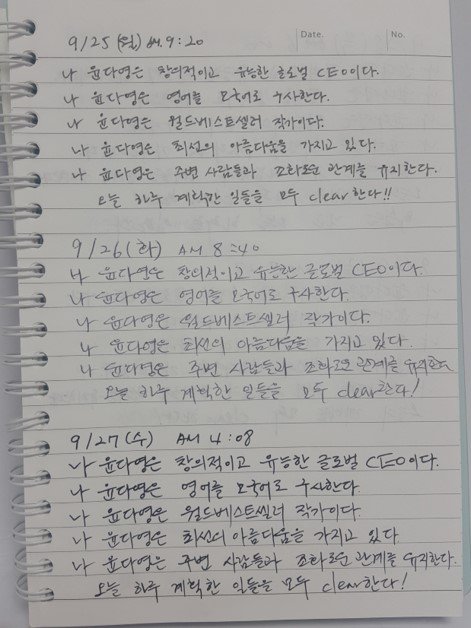 Date. No.
9/25(월) AM.9:20
나 윤다영은 창의적이고 유능한 글로벌 CEO이다.
나 윤다영은 영어를 모국어로 구사한다.
나 윤다영은 월드베스트셀러 작가이다.
나 윤다영은 최선의 아름다움을 가지고 있다.
나 윤다영은 주변 사람들과 조화로운 관계를 유지한다.
오늘 하루 계획한 일들을 모두 clear한다!!
9/26(화) AM 8:40
나 윤다영은 창의적이고 유능한 글로벌 CEO이다.
나 윤다영은 영어를 모국어로 구사한다.
나 윤다영은 월드베스트셀러 작가이다.
나 윤다영은 최선의 아름다움을 가지고 있다.
나 윤다영은 주변 사람들과 조화로운 관계를 유지한다
오늘 하루 계획한 일들을 모두 clear한다!
9/27(수) AM 4:08
나 윤다영은 창의적이고 유능한 글로벌 CEO이다.
나 윤다영은 영어를 모국어로 구사한다
나 윤다영은 월드베스트셀러 작가이다.
나 윤다영은 최선의 아름다움을 가지고 있다
나 윤다영은 주변 사람들과 조화로운 관계를 유지한다.
오늘 하루 계획한 일들을 모두 clear한다!